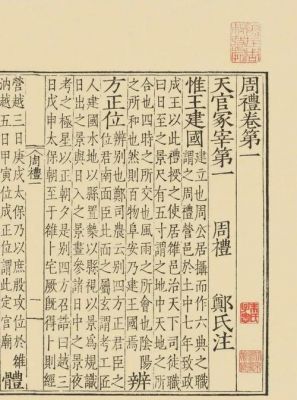 周禮卷第一
天官冢宰第一 周禮 鄭氏注
惟王建國
建立也周公居攝而作六典之職
謂之周禮營邑於土中七年致政
成王以此禮授之使居雒邑治天下司徒職
曰日至之景尺有五寸謂之地中天地之所
合也四時之所交也風雨之所會也陰陽
之所和也然則百物阜安乃建王國焉
辨
方正位
辨別也鄭司農云別四方正君臣之
位君南面臣北面之屬玄謂考工匠
人建國水地以縣置槷以縣視以景爲規識
日出之景與日入之景晝參諸日中之景夜
考之極星以正朝夕是別四方召誥曰越三
日戊申太保朝至于雒卜宅厥既得卜則經
周禮一
一
營越三日庚戌太保乃以庶殷攻位於雒
汭越五日甲寅位成正位謂此定宮廟
體